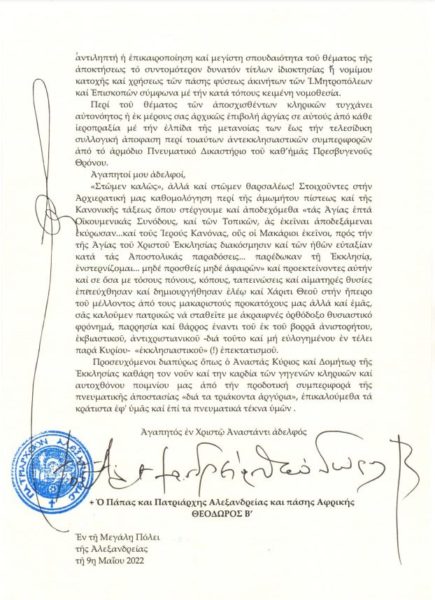 ἀντιληπτή ἡ ἐπικαιροποίηση καί μεγίστη σπουδαιότητα τοῦ θέματος τῆς
ἀποκτήσεως τό συντομότερον δυνατόν τίτλων ἰδιοκτησίας ἤ νομίμου
κατοχῆς καί χρήσεως τῶν πάσης φύσεως ἀκινήτων τῶν Ἱ.Μητροπόλεων
καί Ἐπισκοπῶν σύμφωνα μέ τήν κατά τόπους κειμένη νομοθεσία.
Περί τοῦ θέματος τῶν ἀποσχισθέντων κληρικῶν τυγχάνει
αὐτονόητος ἡ ἐκ μέρους σας ἀρχικῶς ἐπιβολή ἀργίας σε αὐτούς ἀπό κάθε
ἱεροπραξία μέ τήν ἐλπίδα τῆς μετανοίας των ἕως τήν τελεσίδικη
συλλογική ἀπόφαση περί τοιαύτων ἀντεκκλησιαστικῶν συμπεριφορῶν
ἀπό τό ἁρμόδιο Πνευματικό Δικαστήριο τοῦ καθ᾽ἡμᾶς Πρεσβυγενοῦς
Θρόνου.
Ἀγαπητοί μου ἀδελφοί,
«Στῶμεν καλῶς», ἀλλά καί στῶμεν θαρσαλέως! Στοιχοῦντες στήν
Ἀρχιερατική μας καθομολόγηση περί τῆς ἀμωμήτου πίστεως καί τῆς
Κανονικῆς τάξεως ὅπου στέργουμε καί ἀποδεχόμεθα «τάς Ἁγίας ἑπτά
Οἰκουμενικάς Συνόδους, καί τῶν Τοπικῶν, ἅς ἐκεῖναι ἀποδεξάμεναι
ἐκύρωσαν...καί τούς Ἱερούς Κανόνας, οὕς οἱ Μακάριοι ἐκεῖνοι, πρός τήν
τῆς Ἁγίας τοῦ Χριστοῦ Ἐκκλησίας διακόσμησιν καί τῶν ἠθῶν εὐταξίαν
κατά τάς Ἀποστολικάς παραδόσεις... παρέδωκαν τῇ Ἐκκλησίᾳ,
ἐνστερνίζομαι... μηδέ προσθείς μηδέ ἀφαιρῶν» καί προεκτείνοντες αὐτήν
καί σέ ὅσα μέ τόσους πόνους, κόπους, ταπεινώσεις καί αἱματηρές θυσίες
ἐπιτεύχθησαν καί δημιουργήθησαν ἐλέῳ καί Χάριτι Θεοῦ στήν ἤπειρο
τοῦ μέλλοντος ἀπό τούς μακαριστούς προκατόχους μας ἀλλά καί ἐμᾶς,
σᾶς καλοῦμεν πατρικῶς νά σταθεῖτε μέ ἀκραιφνές ὀρθόδοξο θυσιαστικό
φρόνημα, παρρησία καί θάρρος ἔναντι τοῦ ἐκ τοῦ βορρᾶ ἀνιστορήτου,
ἐκβιαστικοῦ, ἀντιχριστιανικοῦ -διά τοῦτο καί μή εὐλογημένου ἐν τέλει
παρά Κυρίου- «ἐκκλησιαστικοῦ» (!) ἐπεκτατισμοῦ.
Προσευχόμενοι διαπύρως ὅπως ὁ Ἀναστάς Κύριος καί Δομήτωρ τῆς
Ἐκκλησίας καθάρῃ τον νοῦν καί την καρδία τῶν γηγενῶν κληρικῶν καί
αὐτοχθόνου ποιμνίου μας ἀπό τήν προδοτική συμπεριφορά τῆς
πνευματικῆς ἀποστασίας «διά τα τριάκοντα ἀργύρια», ἐπικαλούμεθα τά
κράτιστα ἐφ᾽ ὑμᾶς καί ἐπί τα πνευματικά τέκνα ὑμῶν .
Ἀγαπητός ἐν Χριστῷ Ἀναστάντι ἀδελφός
+ Ὁ Πάπας και Πατριάρχης Ἀλεξανδρείας και πάσης Ἀφρικῆς
ΘΕΟΔΩΡΟΣ Β'
Ἐν τῇ Μεγάλῃ Πόλει
τῆς Ἀλεξανδρείας
τῇ 9ῃ Μαΐου 2022